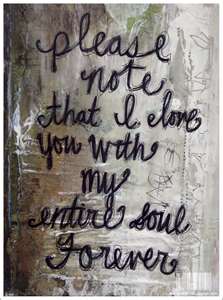 please
note
that I love
you with
my
entire soul
Forever